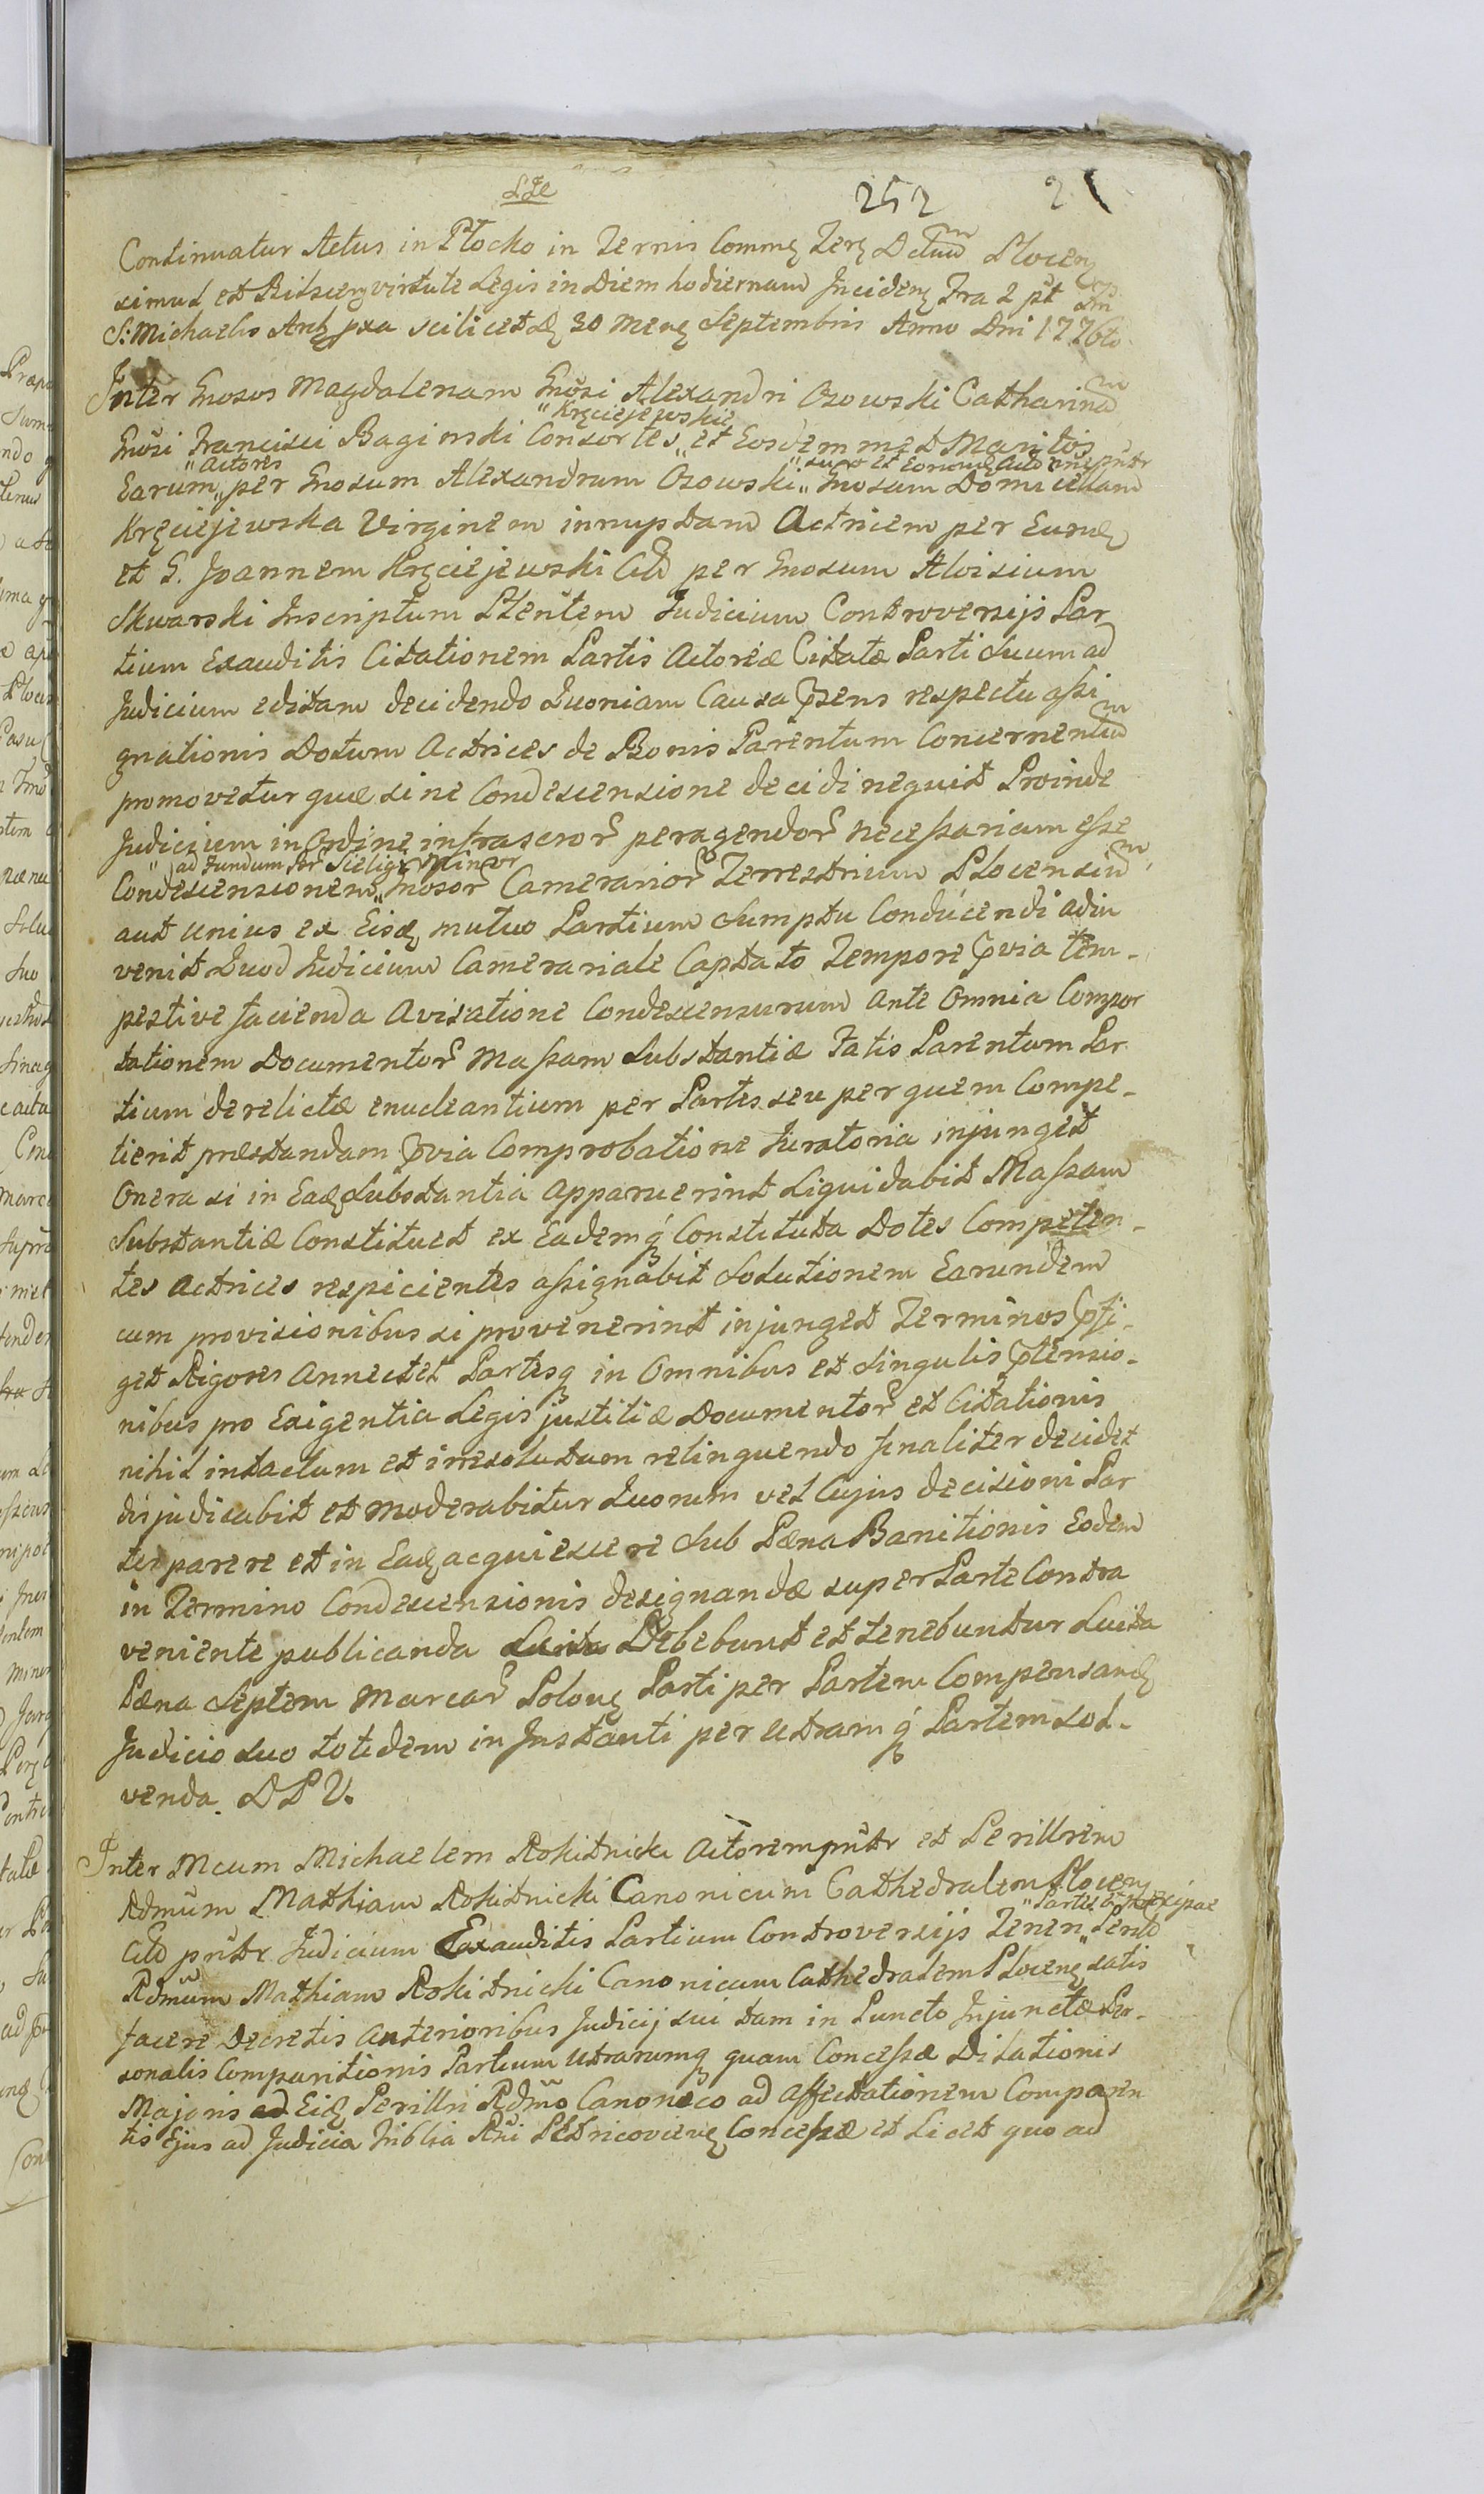 252 2
Continuatur Actus in Płocko in Ternis Commę Terę Dctuum Plocenę
simul et Bilscenę virtute Legis in Diem hodiernam Incidenę Fra 2 pt Frs
S: Michaelis Arch pxa scilicet Dę 30 Mensę Septembris Anno Dni 1776to
Inter Gnosos Magdalenam Gnosi Alexandri Osowski Catharinam
"Kręciejewskie
Gnosi Francisci Baginski Consortes " et Eosdemmet Maritos
"Actores "suo et eorum Acto nne pntr
Earum " per Gnosum Alexandrum Osowski " Gnosam Domicellam
Kręciejewska Virginem innuptam Actricem per Eundę
et G. Joannem Kręciejewski Citd per Gnosum Aloisium
Skwarski Inscriptum Plentem Judicium Controversijs Par
tium Exauditis Citationem Partis Actoreæ Citatæ Parti suum ad
Judicium editam decidendo Quoniam Causa Prens respectu assi
gnationis Dotum Actrices de Bonis Parentum Concernentium
promovetur quæ sine Condescensione decidi nequit Proinde
Judicium in Ordine infrascror peragendor necessariam esse
" ad Fundum Br Sieligi Minor
Condescensionem " Gnosor Camerarior Terrestrium Plocensium
aut unius ex Eisdę mutuo Partium Sumptu Conducendi adin
venit Quod Judicium Camerariale Captato Tempore Prvia tem-
pestive facienda Avisatione Condescensurum Ante Omnia Compor
tationem Documentor Massam Substantiæ Fatis Parentum Par
tium derelictæ enucleantium per Partes seu per quem Compe-
tierit præstandam Prvia Comprobatione Juratoria injunget
Onera si in Eadę Substantia Apparuerint Liquidabit Massam
Substantiæ Constituet ex Eademq Constituta Dotes Competen-
tes Actrices respicientes assignabit Solutionem Earundem
cum provisionibus si provenerint injunget Terminos Prfi-
get Rigores Annectet Partesq in Omnibus et Singulis Prtensio-
nibus pro Exigentia Legis justitiæ Documentor et Citationis
nihil intactum et irresolutum relinquendo finaliter decidet
disjudicabit et moderabitur Quorum vel Cujus decisioni Par
tes parere et in Eadę acquiescere sub Pæna Banitionis Eodem
in Termino Condescensionis designandæ super Parte Contra
veniente publicanda Debebunt et tenebuntur Luita
Pæna Septem Marcar Polonę Parti per Partem Compensandę
Judicio suo totidem in Instanti per utramq Partem sol-
venda. D P V.
Inter Mcum Michaelem Rokitnicki Actorem pntr et Perillrem
Rdmum Mathiam Rokitnicki Canonicum Cathedralem Plocen
Citd pntr Judicium Exauditis Partium Controversijs Tenen " Perild
Rdmum Mathiam Rokitnicki Canonicum Cathedralem Plocenę satis
facere Decretis Anterioribus Judicij sui tam in Puncto Injunctæ Per-
sonalis Comparitionis Partium Utrarumq quam Concessæ Dilationis
Majoris Eidę Perillri Rdmo Canonico ad Affectationem Comparen
tis Ejus ad Judicia Triblia Rni Petricovienę Concessæ et Licet quo ad